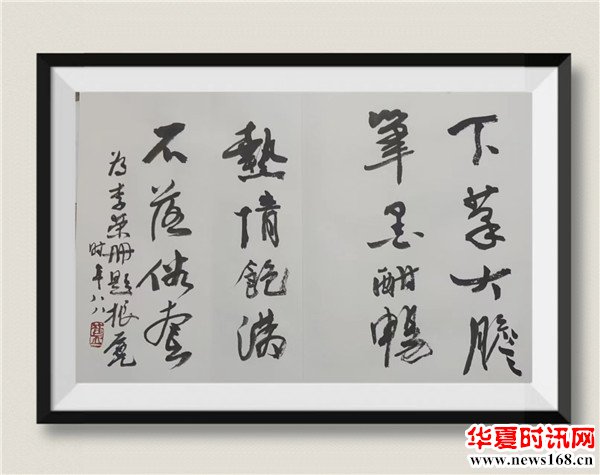 下筆大膽
筆墨酣暢
熱情飽滿
不落俗套
为李荣册题
时年八八
华夏时讯网
www.news168.cn